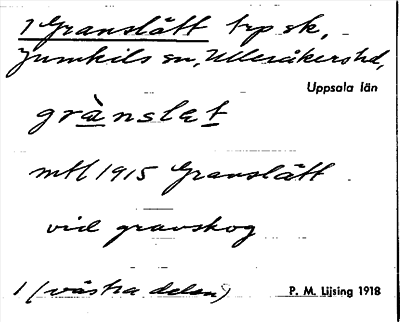 1 Granslått trp sk,
Jumkils sn, Ulleråkers hd,
Uppsala län
grànslɛt
mtl 1915 Granslått
vid granskog
1 (västra delen)
P. M. Lijsing 1918